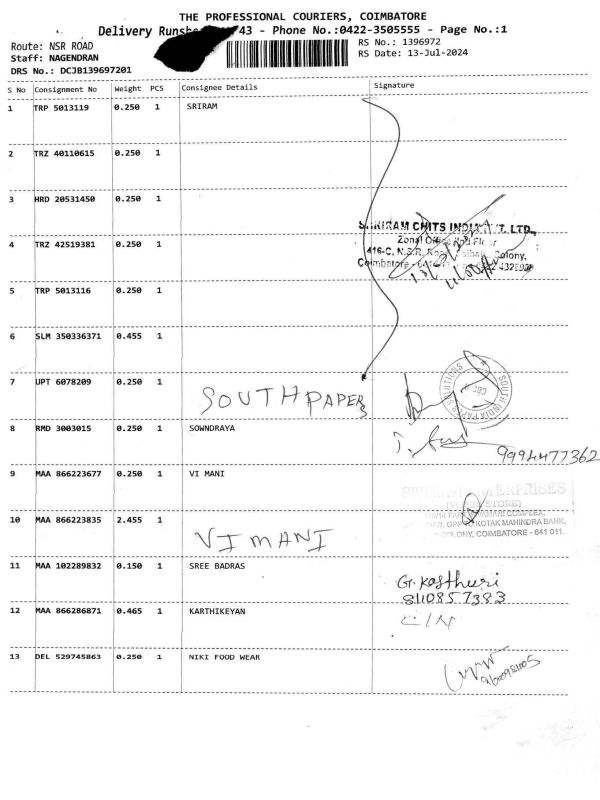 THE PROFESSIONAL COURIERS, COIMBATORE
Delivery Runsh 43 - Phone No.:0422-3505555 - Page No.:1
Route: NSR ROAD
RS No.: 1396972
Staff: NAGENDRAN
RS Date: 13-Jul-2024
DRS No.: DCJB139697201
S No Consignment No Weight PCS Consignee Details Signature
1 TRP 5013119 0.250 1 SRIRAM
2 TRZ 40110615 0.250 1
3 HRD 20531450 0.250 1
SHRIRAM CHITS INDIA T. LTD.
4 TRZ 42519381 0.250 1
Zonal Office
416-C, N.S.R. Colony,
Coimbatore
5 TRP 5013116 0.250 1
6 SLM 350336371 0.455 1
7 UPT 6078209 0.250 1
SOUTH PAPERS
SOUTH INDIA PAPER SOLUTIONS
CBE
8 RMD 3003015 0.250 1 SOWNDRAYA
9994477362
9 MAA 866223677 0.250 1 VI MANI
ENTERPRISES
10 MAA 866223835 2.455 1
VI MANI
KOTAK MAHINDRA BANK,
COLONY, COIMBATORE - 641 011.
11 MAA 102289832 0.150 1 SREE BADRAS
G. Kasthuri
8110857383
12 MAA 866286871 0.465 1 KARTHIKEYAN
13 DEL 529745863 0.250 1 NIKI FOOD WEAR